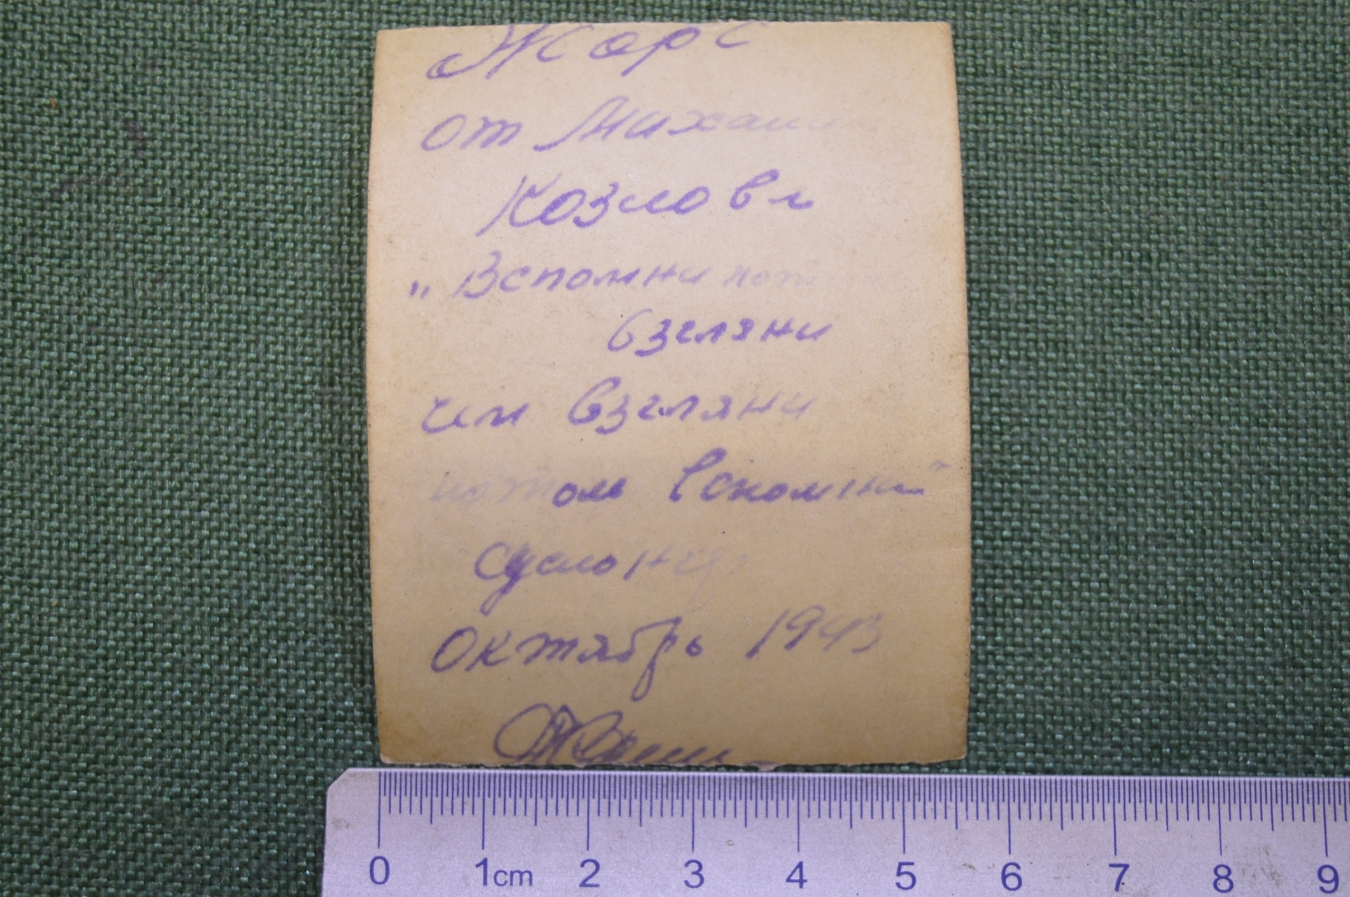 Жорс
от Михаила
Козлова
„Вспомни пот
взгляни
чем взгляни
потом вспомни"
Октябрь 1943
0 1cm 2 3 4 5 6 7 8 9